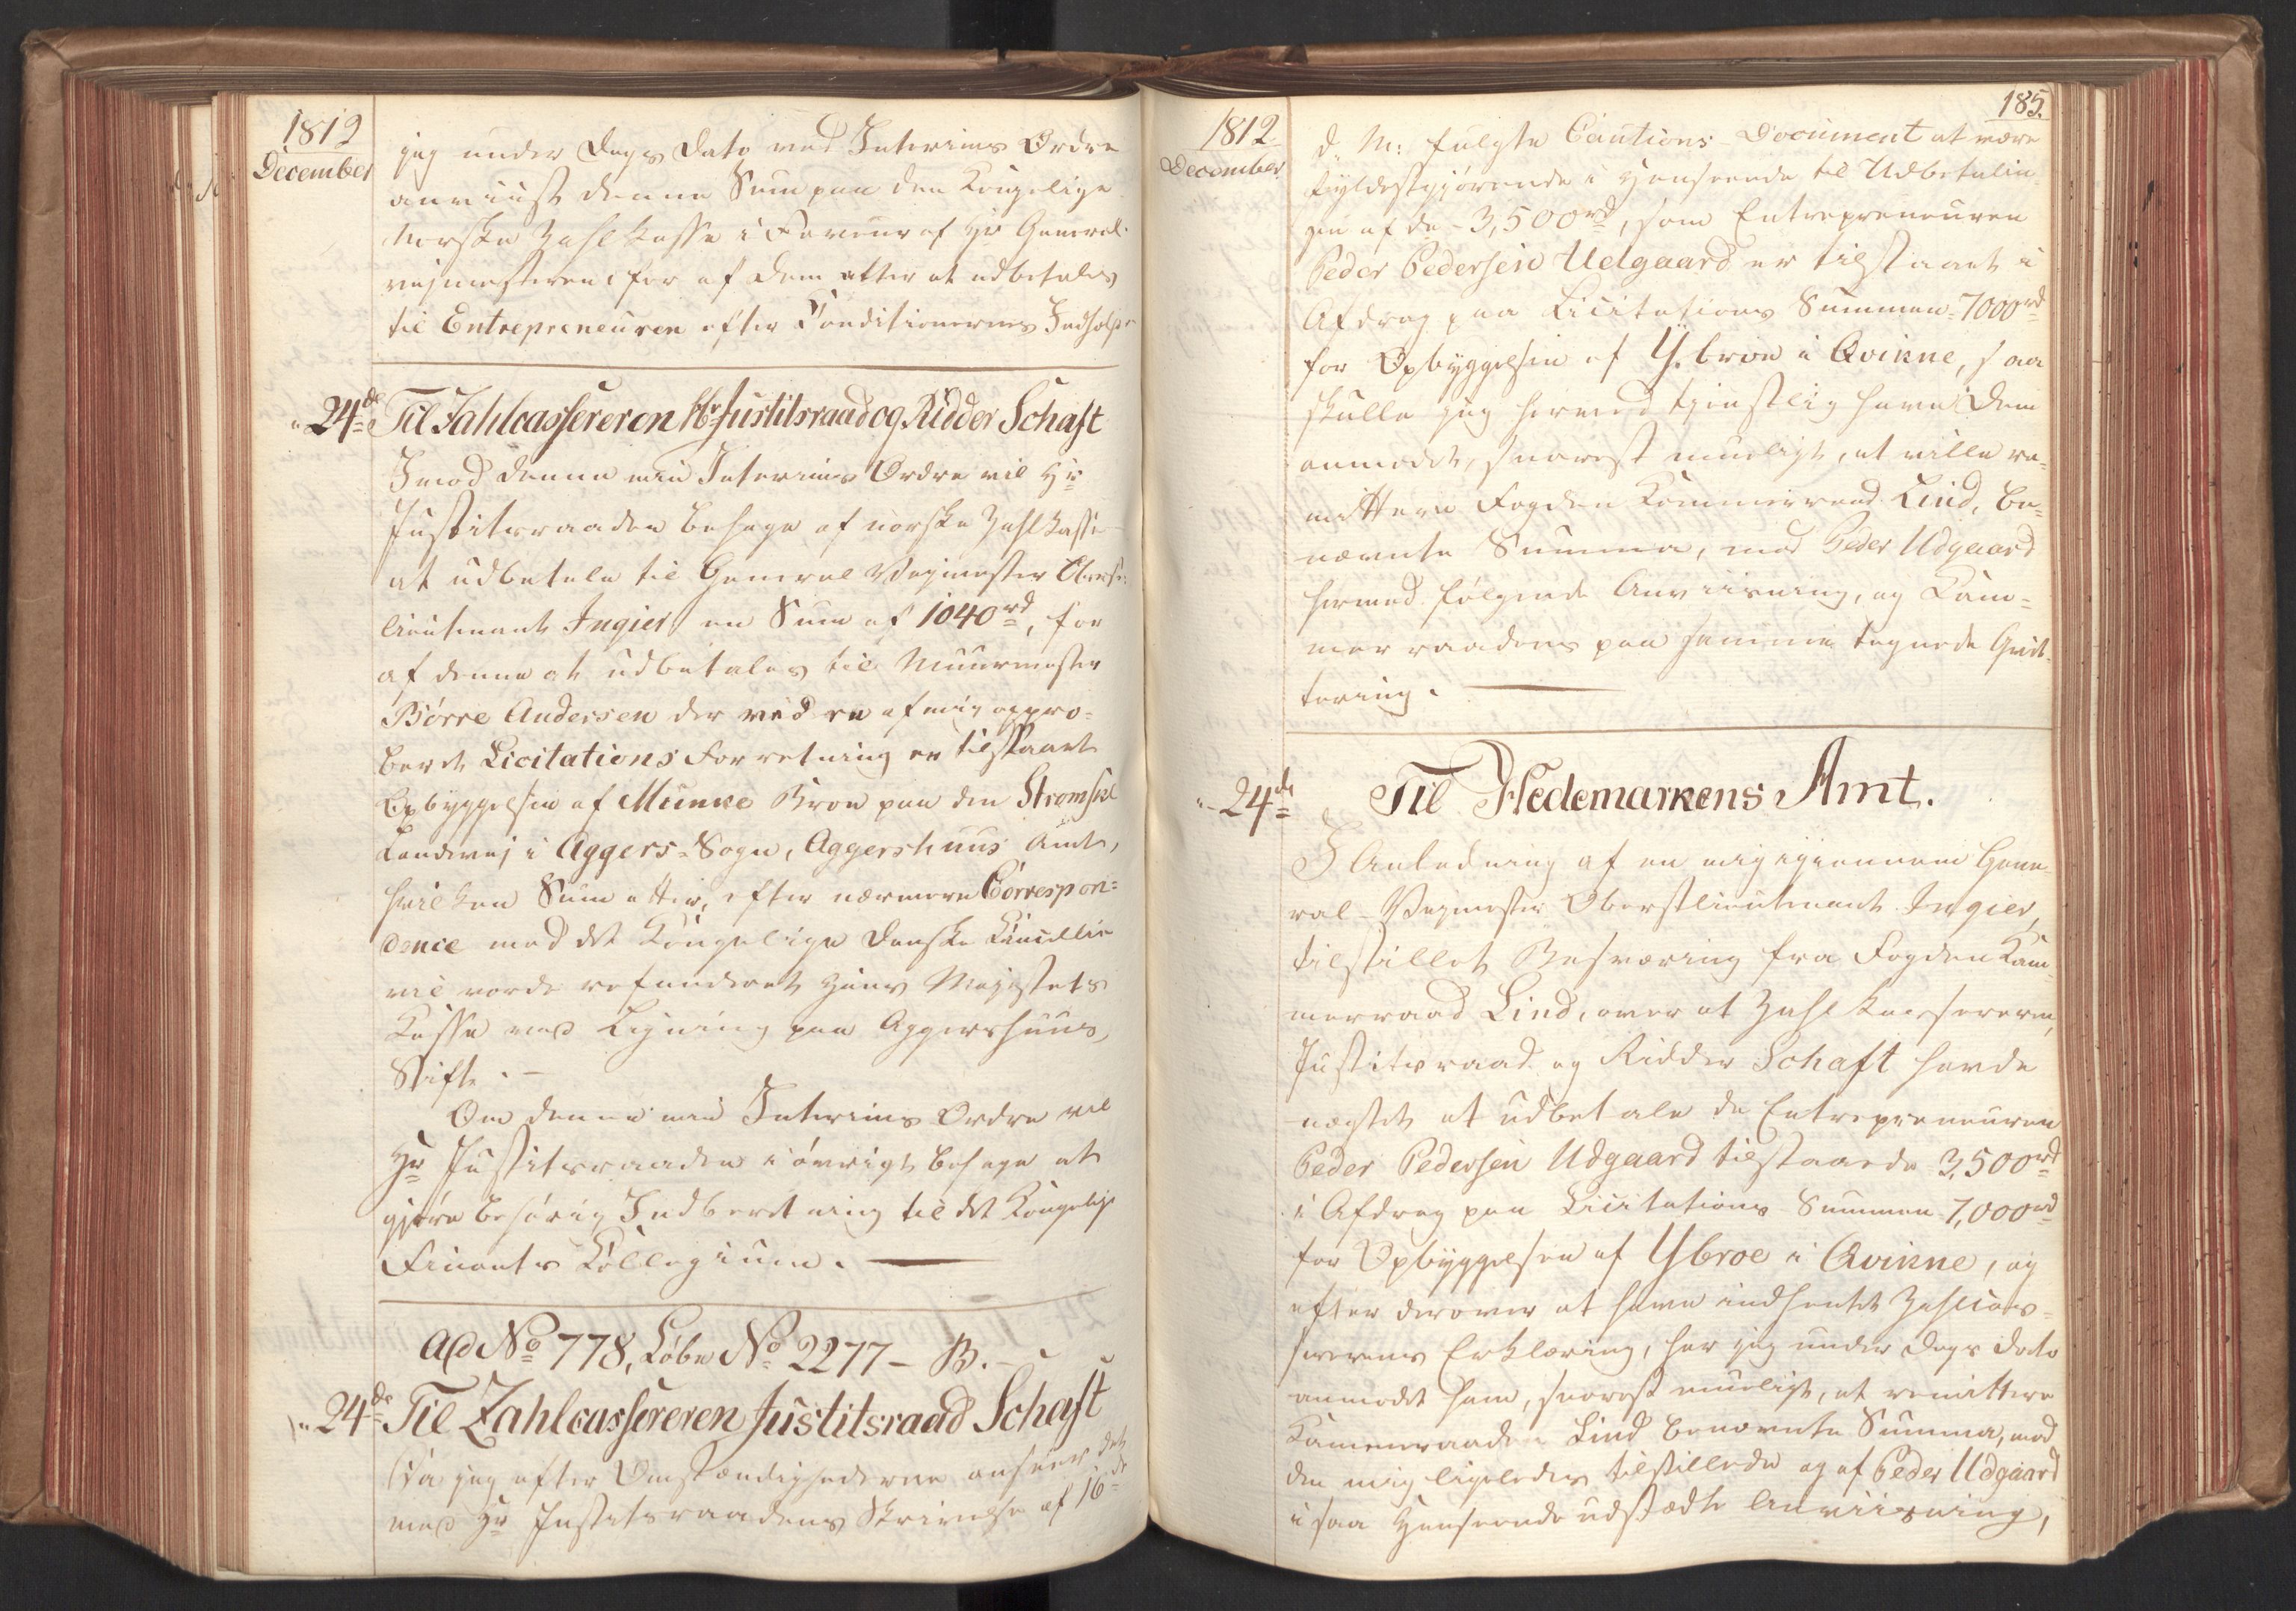 1812
December
jeg under Dags Dato ved Interims Ordre
anviist denne Sum paa den Kongelige
Norske Zahlkasse i Faveur af Hr General-
vejmesteren for af dem atter at udbetales
til Entrepreneuren efter Conditionernes Indhold
" 24de Til Zahlcassereren Hr Justitsraad og Ridder Schaft
Imod denne min Interims Ordre vil Hr
Justitsraaden behage af norske Zahlkasse
at udbetale til General Vejmester Oberst-
lieutenant Ingier en Sum af 1040 rd, for
af denne at udbetales til Muurmester
Børre Andersen der ved en af mig appro-
beret Licitations Forretning er tilstaaet
Opbyggelsen af Munke Broe paa den Strømsøe
Landevej i Aggers-Sogn, Aggershuus Amt,
hvilken Sum atter, efter nærmere Correspon-
dence med det Kongelige Danske Cancellie
vil vorde refunderet Hans Majestets
Kasse ved Ligning paa Aggershuus
Stift. -
Om denne min Interims Ordre vil
Hr Justitsraaden i øvrigt behage at
gjøre behørig Indberetning til det Kongelige
Finants Collegium.
Ad No 778, Løbe No 2277 - B.
" 24de Til Zahlcassereren Justitsraad Schaft
Da jeg efter Omstændighederne anseer det
med Hr Justitsraadens Skrivelse af 16de
185.
1812
December
d. M. fulgte Cautions-Document at være
fyldestgjørende i Henseende til Udbetalin-
gen af de 3,500 rd, som Entrepreneuren
Peder Pedersen Udgaard er tilstaaet i
Afdrag paa Licitations Summen 7000 rd
for Opbyggelsen af Y. broe i Qvikne, saa
skulle jeg herved tjenstlig have Dem
anmodet, snarest mueligt, at ville re-
mittere Fogden Kammerraad Lind, be-
nævnte Summa, mod Peder Udgaard
hermed følgende Anviisning, og Kam-
merraadens paa samme tegnede Qvit-
tering.
" 24de Til Hedemarkens Amt.
I Anledning af en mig igiennem Gene-
ral-Vejmester Oberstlieutenant Ingier,
tilstillet Besværing fra Fogden Kam-
merraad Lind, over at Zahlkassereren,
Justitsraad og Ridder Schaft havde
nægtet at udbetale de Entrepreneuren
Peder Pedersen Udgaard tilstaaede 3,500 rd
i Afdrag paa Licitations-Summen 7,000 rd
for Opbyggelsen af Ybroe i Qvikne, og
efter derover at have indhentet Zahlcas-
sererens Erklæring, har jeg under Dags Dato
anmodet ham, snarest mueligt, at remittere
Kammerraaden Lind benævnte Summa, mod
den mig ligeledes tilstillede og af Peder Udgaard
i saa Henseende udstædte Anviisning,